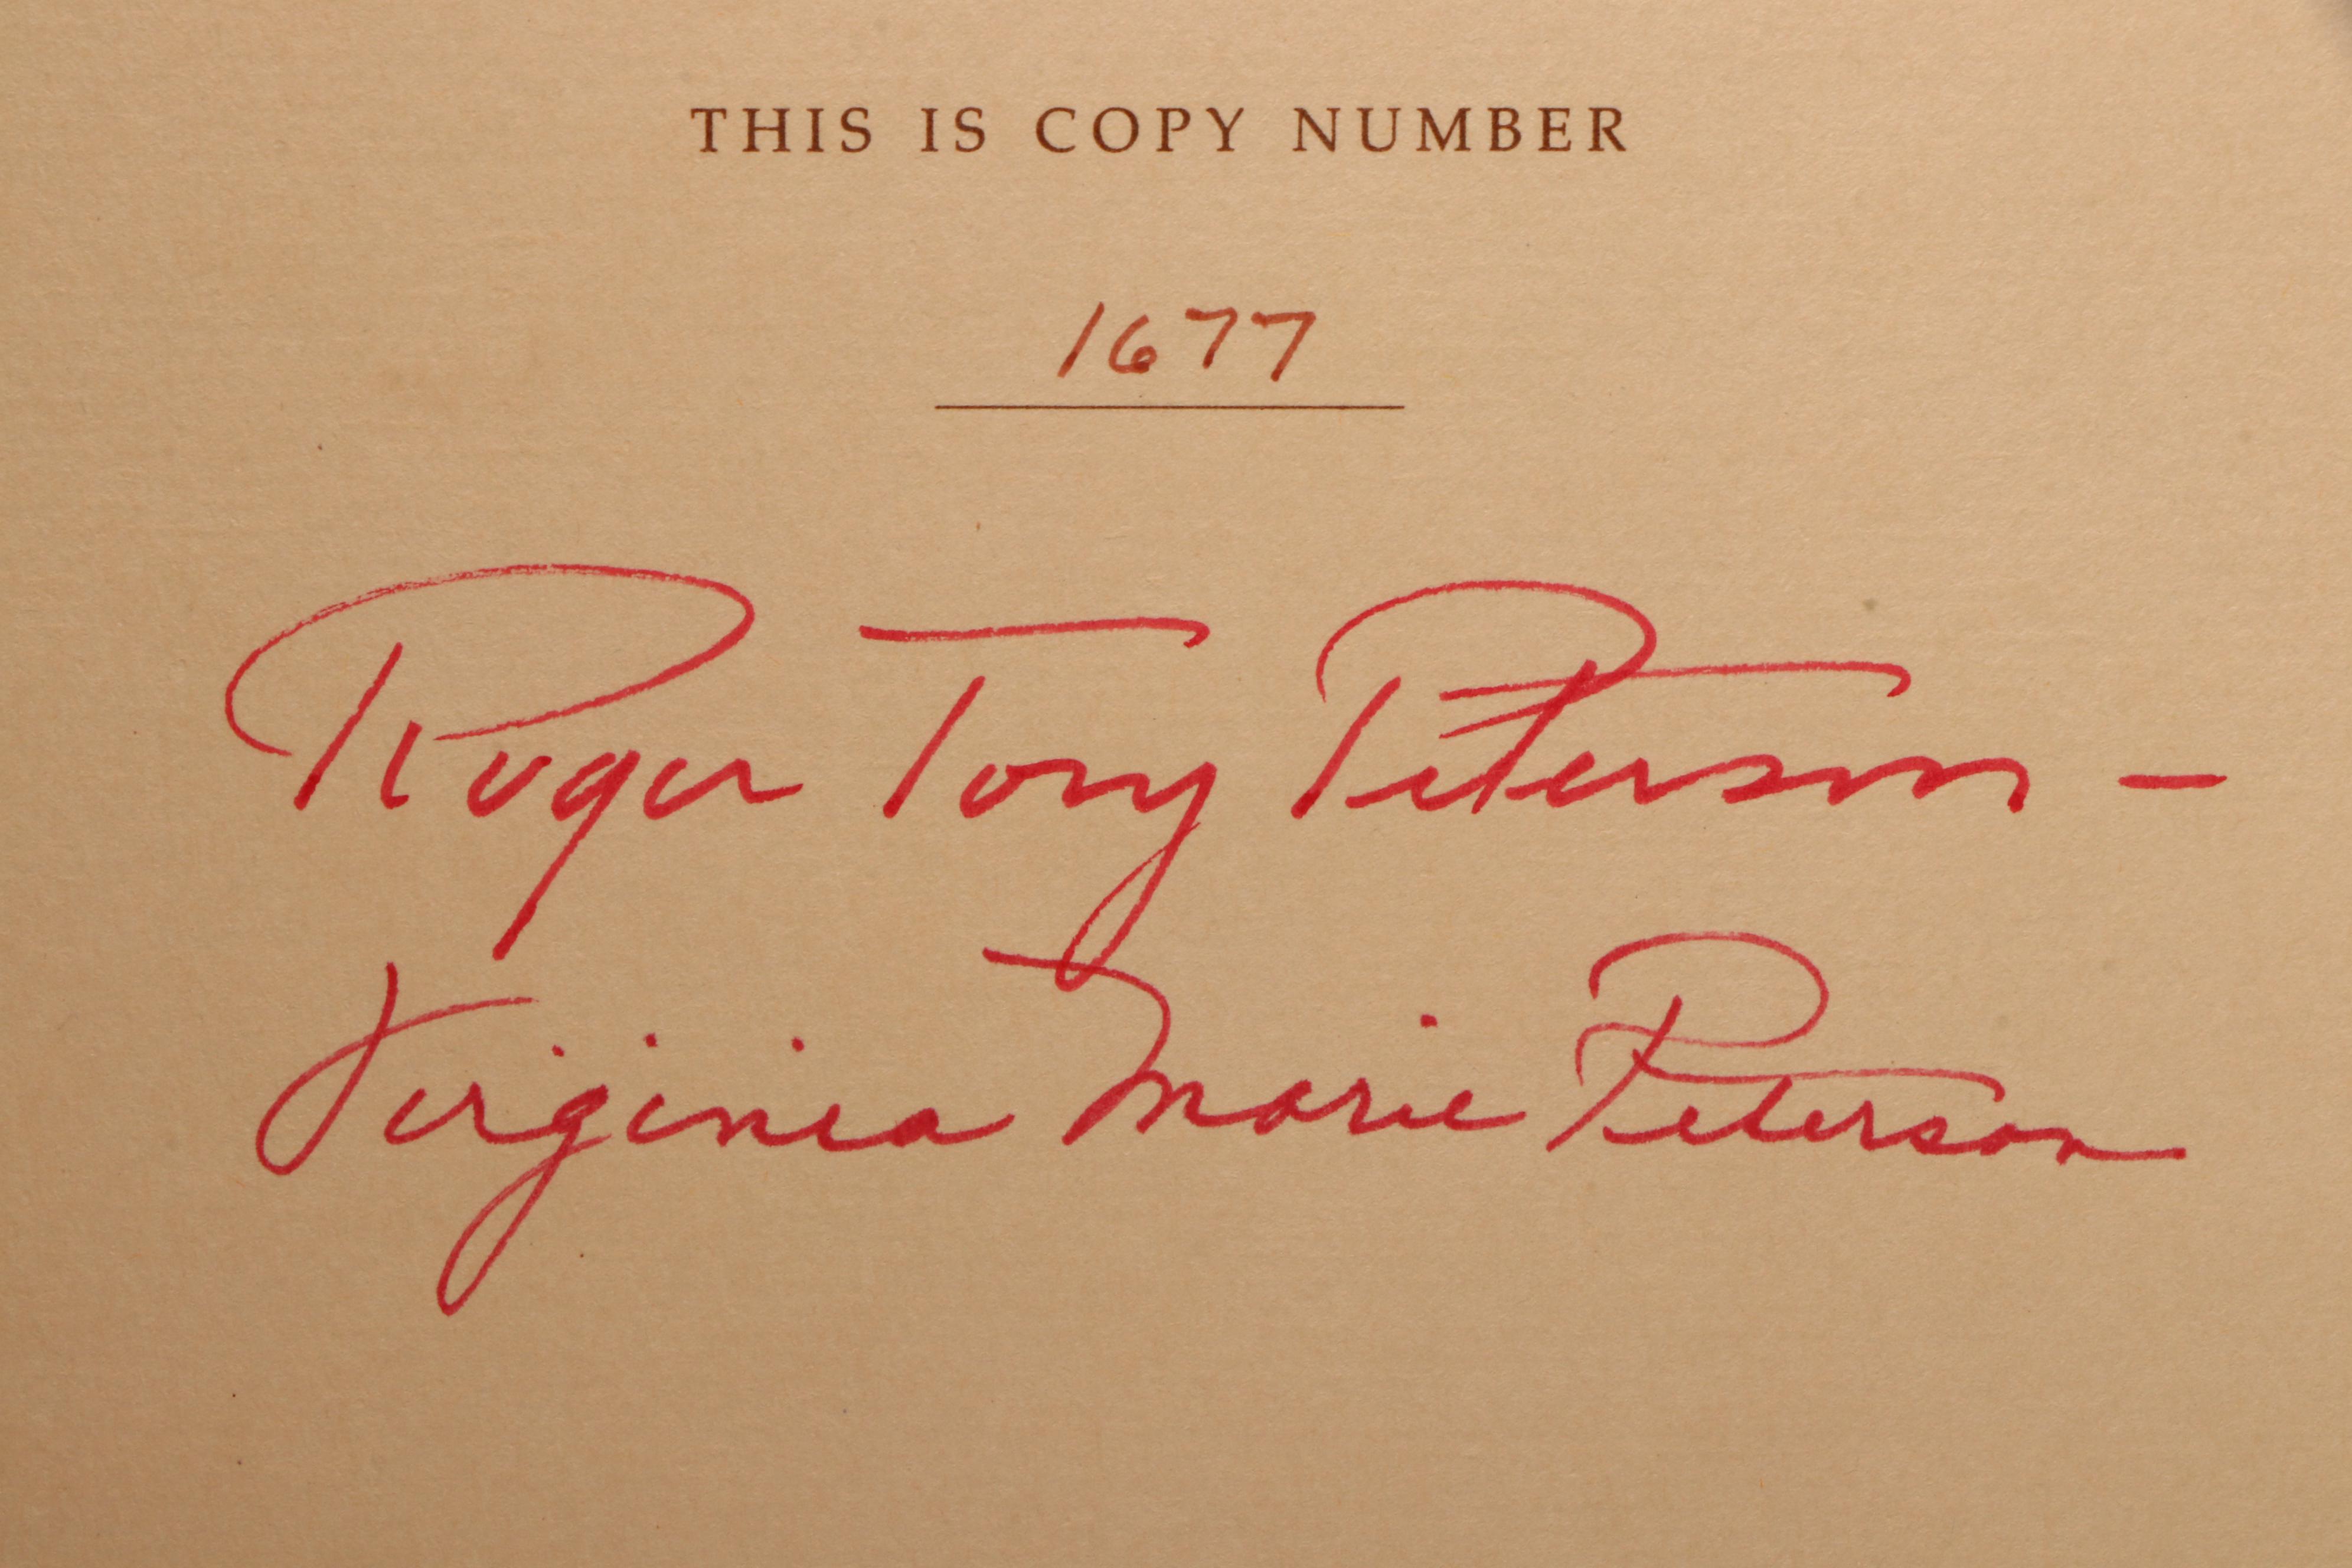 THIS IS COPY NUMBER
1677
Roger Tory Peterson –
Virginia Marie Peterson